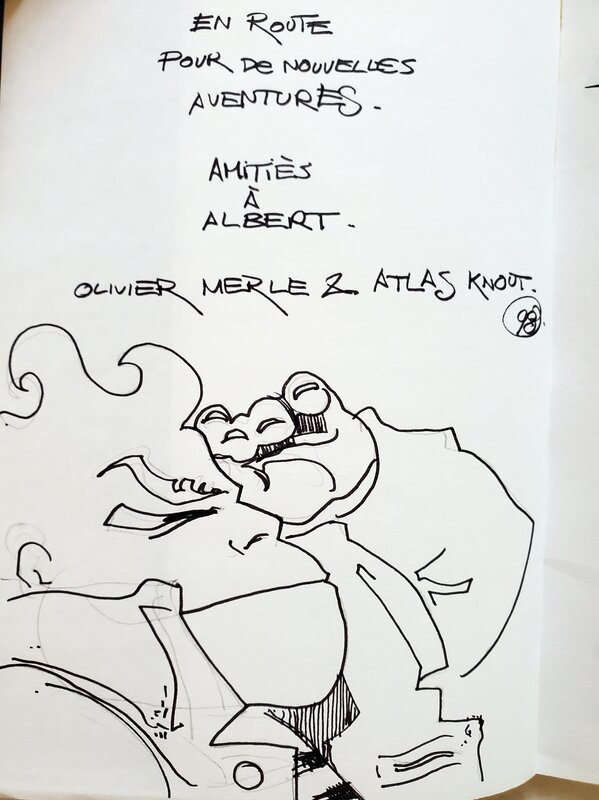 EN ROUTE
POUR DE NOUVELLES
AVENTURES.
AMITIÈS
À
ALBERT.
OLIVIER MERLE & ATLAS KNOUT.
98